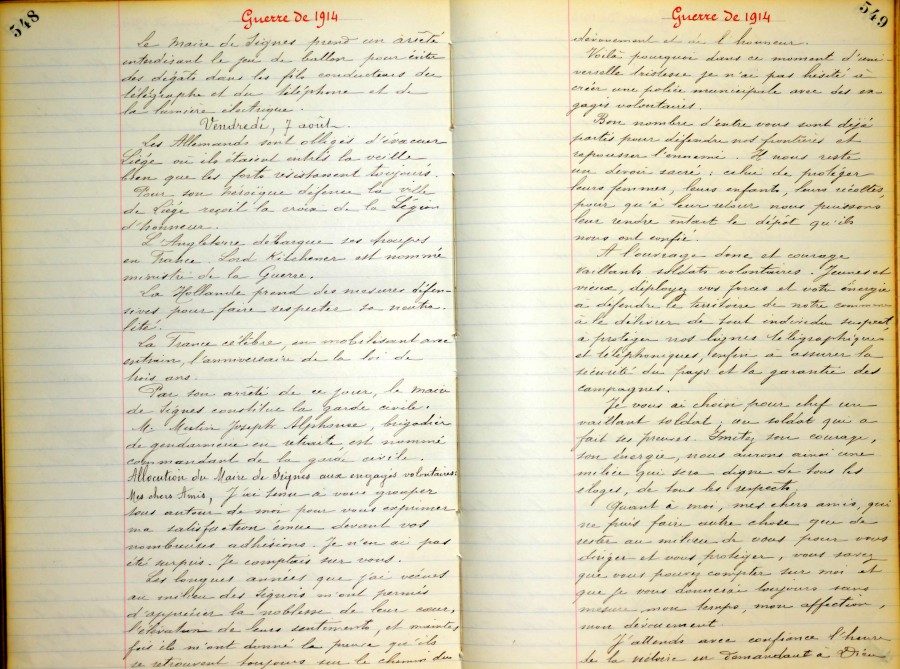 548
Guerre de 1914
Le Maire de Signes prend un arrêté
interdisant le jeu de ballon pour éviter
des dégats dans les fils conducteurs du
télégraphe et du téléphone et de
la lumière électrique.
Vendredi, 7 août.
Les Allemands sont obligés d'évacuer
Liége où ils étaient entrés la veille
bien que les forts résistaient toujours.
Pour son héroïque défense la ville
de Liége reçoit la croix de la Légion
d'honneur.
L'Angleterre débarque ses troupes
en France. Lord Kitchener est nommé
ministre de la Guerre.
La Hollande prend des mesures défen-
sives pour faire respecter sa neutra-
lité.
La France célèbre, en mobilisant avec
entrain, l'anniversaire de la loi de
trois ans.
Par son arrêté de ce jour, le maire
de Signes constitue la garde civile.
M. Joseph Alphonse, brigadier
de gendarmerie en retraite est nommé
commandant de la garde civile.
Allocution du Maire de Signes aux engagés volontaires:
Mes chers Amis, J'ai tenu à vous grouper
tous autour de moi pour vous exprimer
ma satisfaction émue devant vos
nombreuses adhésions. Je n'en ai pas
été surpris. Je comptais sur vous.
Les longues années que j'ai vécues
au milieu des Signois m'ont permis
d'apprécier la noblesse de leur cœur,
l'élévation de leurs sentiments, et maintes
fois ils m'ont donné la preuve qu'ils
se retrouvent toujours sur le chemin du
549
Guerre de 1914
dévouement et de l'honneur.
Voilà pourquoi dans ce moment d'uni-
verselle tristesse je n'ai pas hésité à
créer une police municipale avec des en-
gagés volontaires.
Bon nombre d'entre vous sont déjà
partis pour défendre nos frontières et
repousser l'ennemi. Il nous reste
un devoir sacré: celui de protéger
leurs femmes, leurs enfants, leurs récoltes
pour qu'à leur retour nous puissions
leur rendre intact le dépôt qu'ils
nous ont confié.
A l'ouvrage donc et courage
vaillants soldats volontaires. Jeunes et
vieux, déployez vos forces et votre énergie
à défendre le territoire de notre commune
à le délivrer de tout individu suspect,
à protéger nos lignes télégraphiques
et téléphoniques, enfin à assurer la
sécurité du pays et la garantie des
campagnes.
Je vous ai choisi pour chef un
vaillant soldat; un soldat qui a
fait ses preuves. Imitez son courage,
son énergie, nous aurons ainsi une
milice qui sera digne de tous les
éloges, de tous les respects.
Quant à moi, mes chers amis, qui
ne puis faire autre chose que de
rester au milieu de vous pour vous
diriger et vous protéger, vous savez
que vous pouvez compter sur moi et
que je vous donnerai toujours sans
mesure mon temps, mon affection,
mon dévouement.
J'attends avec confiance l'heure
de la victoire en demandant à Dieu